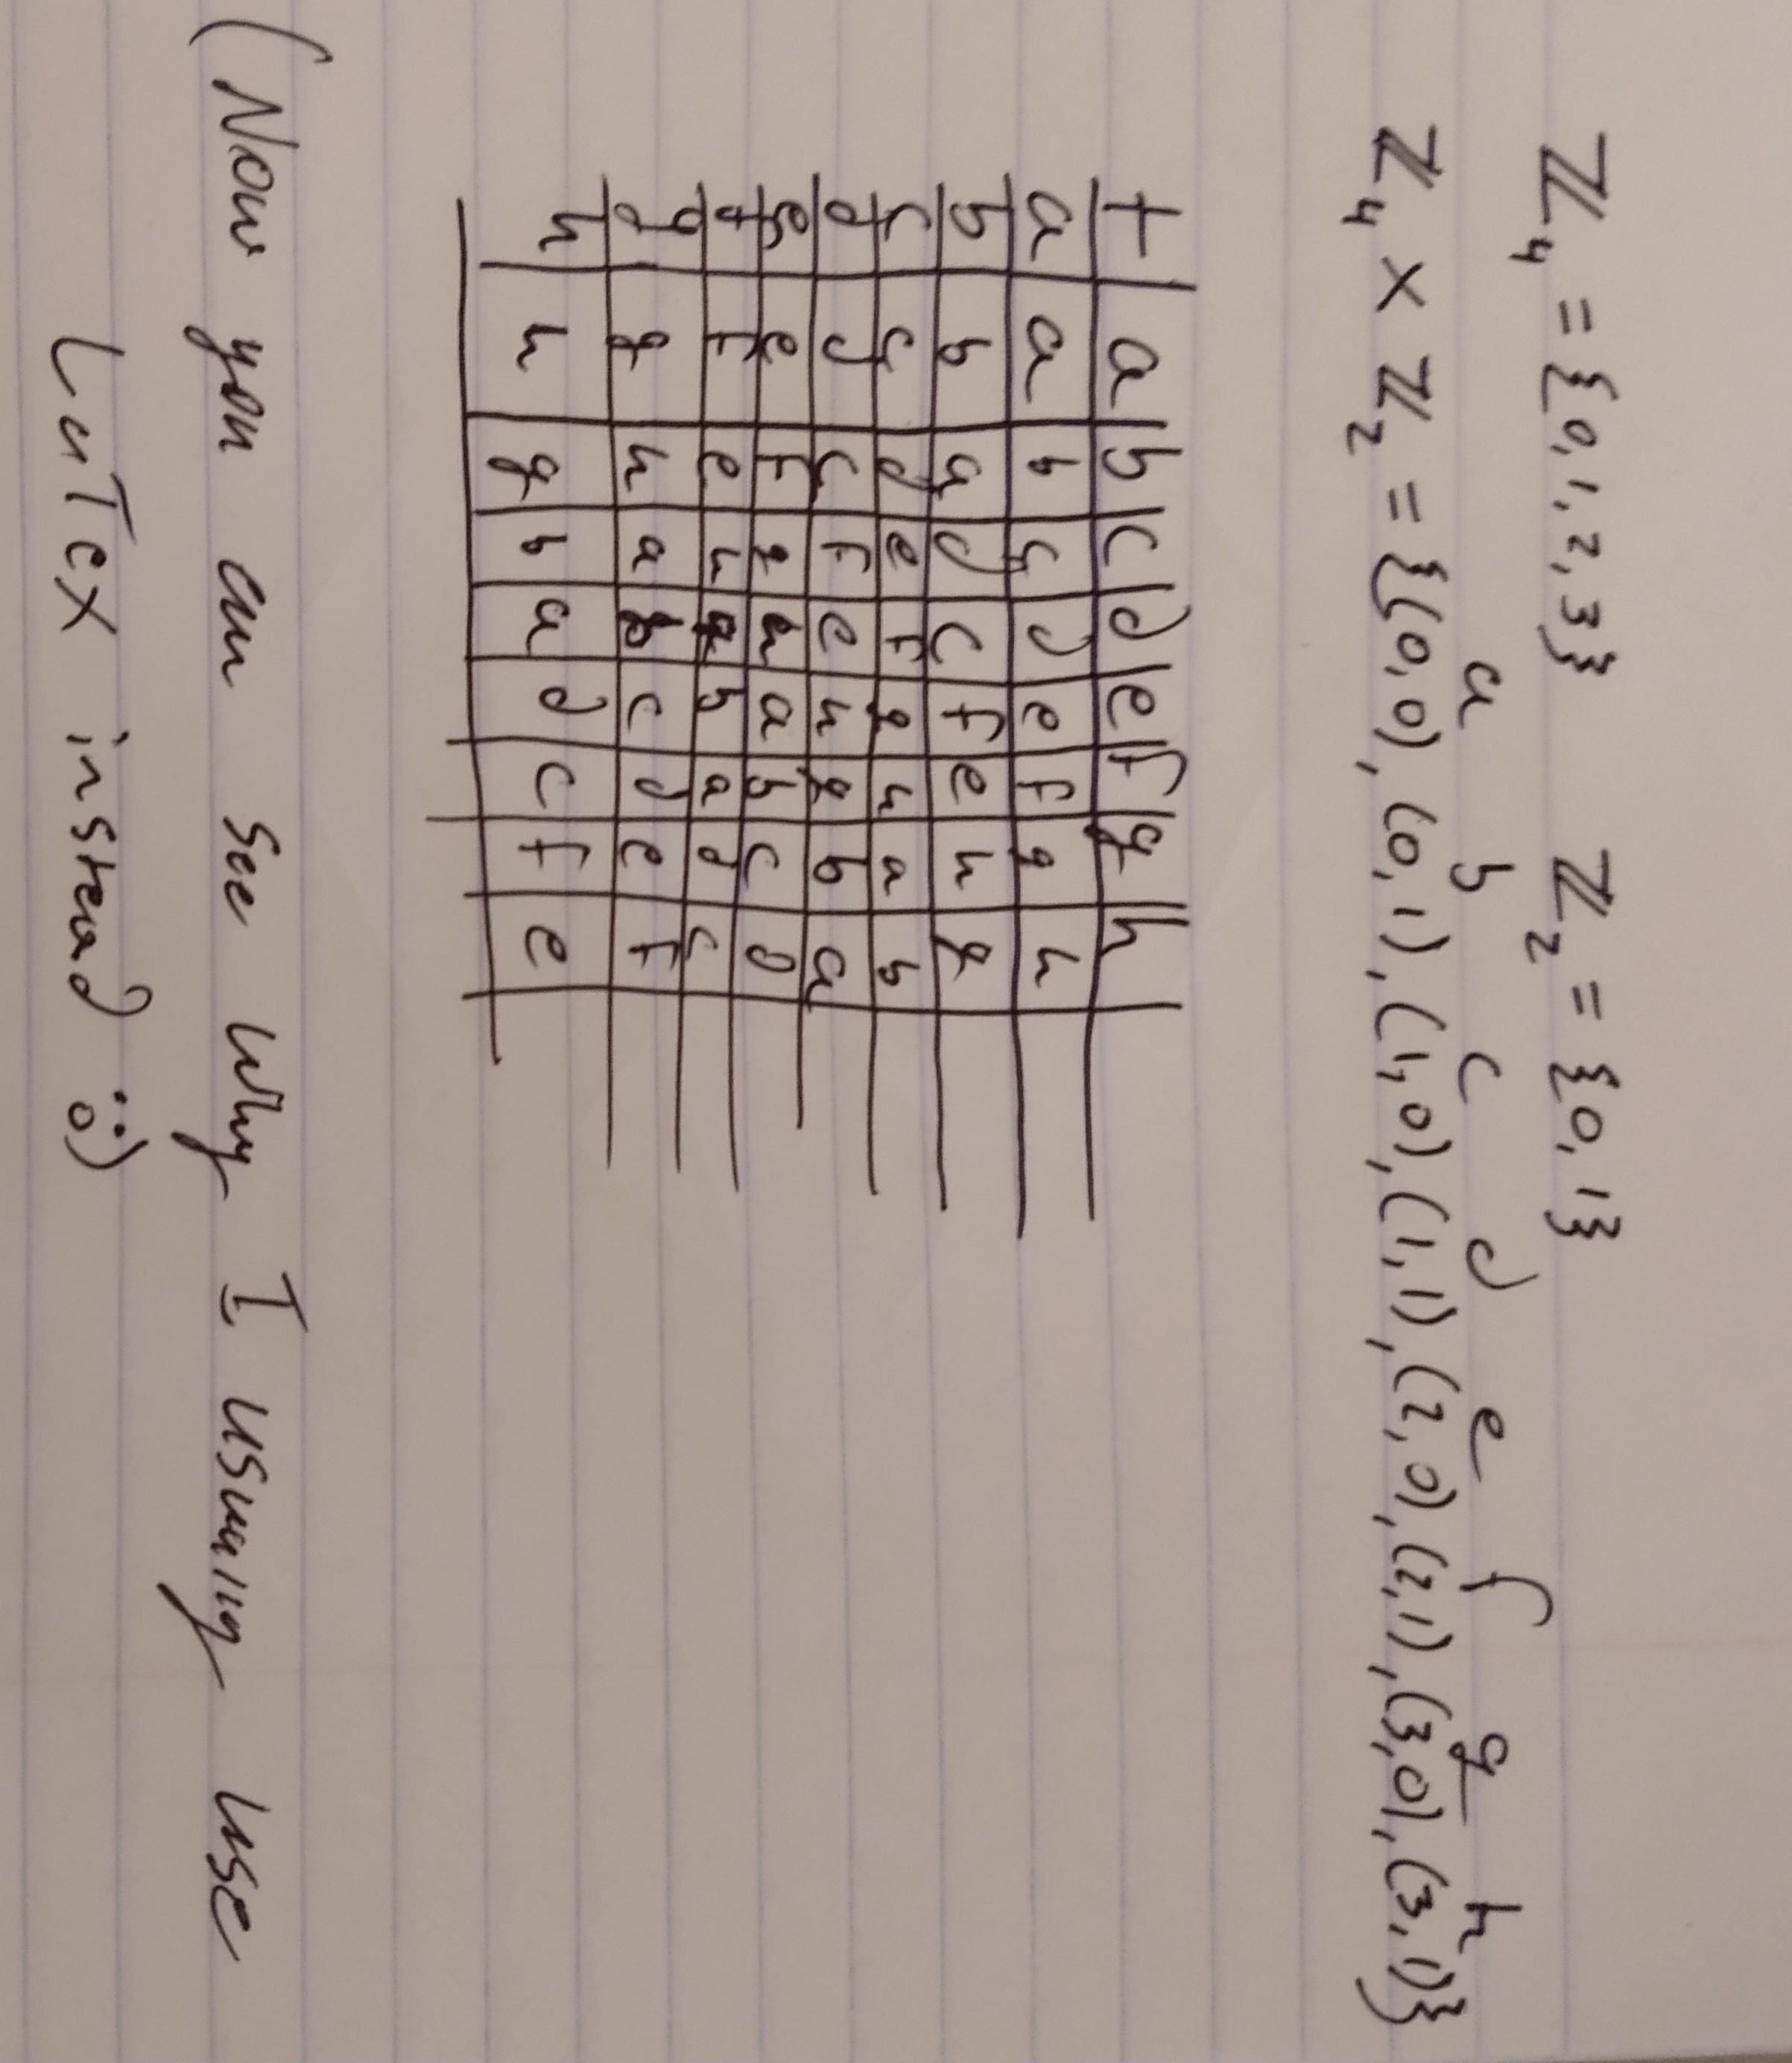 ℤ₄ = {0,1,2,3} ℤ₂ = {0,1}
a b c d e f g h
ℤ₄ × ℤ₂ = {(0,0), (0,1), (1,0), (1,1), (2,0), (2,1), (3,0), (3,1)}
+ a b c d e f g h
a a b c d e f g h
b b a d c f e h g
c c d e f g h a b
d d c f e h g b a
e e f g h a b c d
f f e h g b a d c
g g h a b c d e f
h h g b a d c f e
(Now you can see why I usually use
LaTeX instead :o)